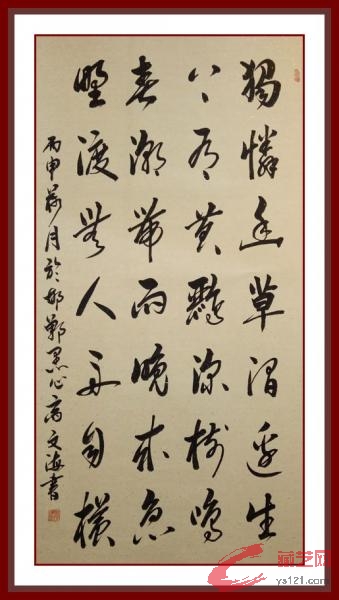 獨憐幽草澗邊生
上有黃鸝深樹鳴
春潮帶雨晚來急
野渡無人舟自橫
丙申月於邯鄲墨心高文海書
藏艺网
ys121.com